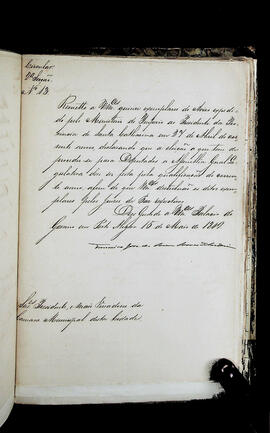 Circular
2ª Secção
Nº 13
Remetto a Vmces quinze exemplares do Aviso expedi-
do pelo Ministerio do Imperio ao Presidente da Pro-
vincia de Santa Catharina em 27 de Abril do cor-
rente anno declarando que a eleição a que tem de
proceder-se para Deputados a Assembléa Geral Le-
gislativa deve ser feita pela qualificação do corren-
te anno afim de que Vmces distribuão os ditos exem-
plares pelos Juizes de Paz respectivos.
Deos Guarde a Vmces Palacio do
Governo em Porto Alegre 15 de Maio de 1849
Francisco José de Souza Soares de Andréa
Snrs. Presidente, e mais Vereadores da
Camara Municipal desta Cidade